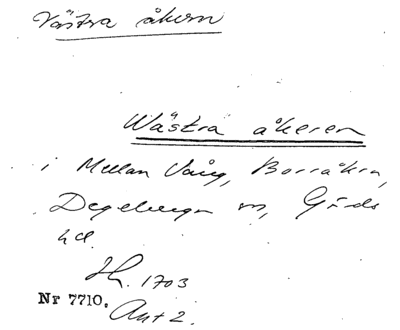 Västra åkern
Wästra åkeren
i Mellan Vång, Borråkra,
Degeberga sn, Gärds
hd.
Jh. 1703
Nr 7710. Akt 2.